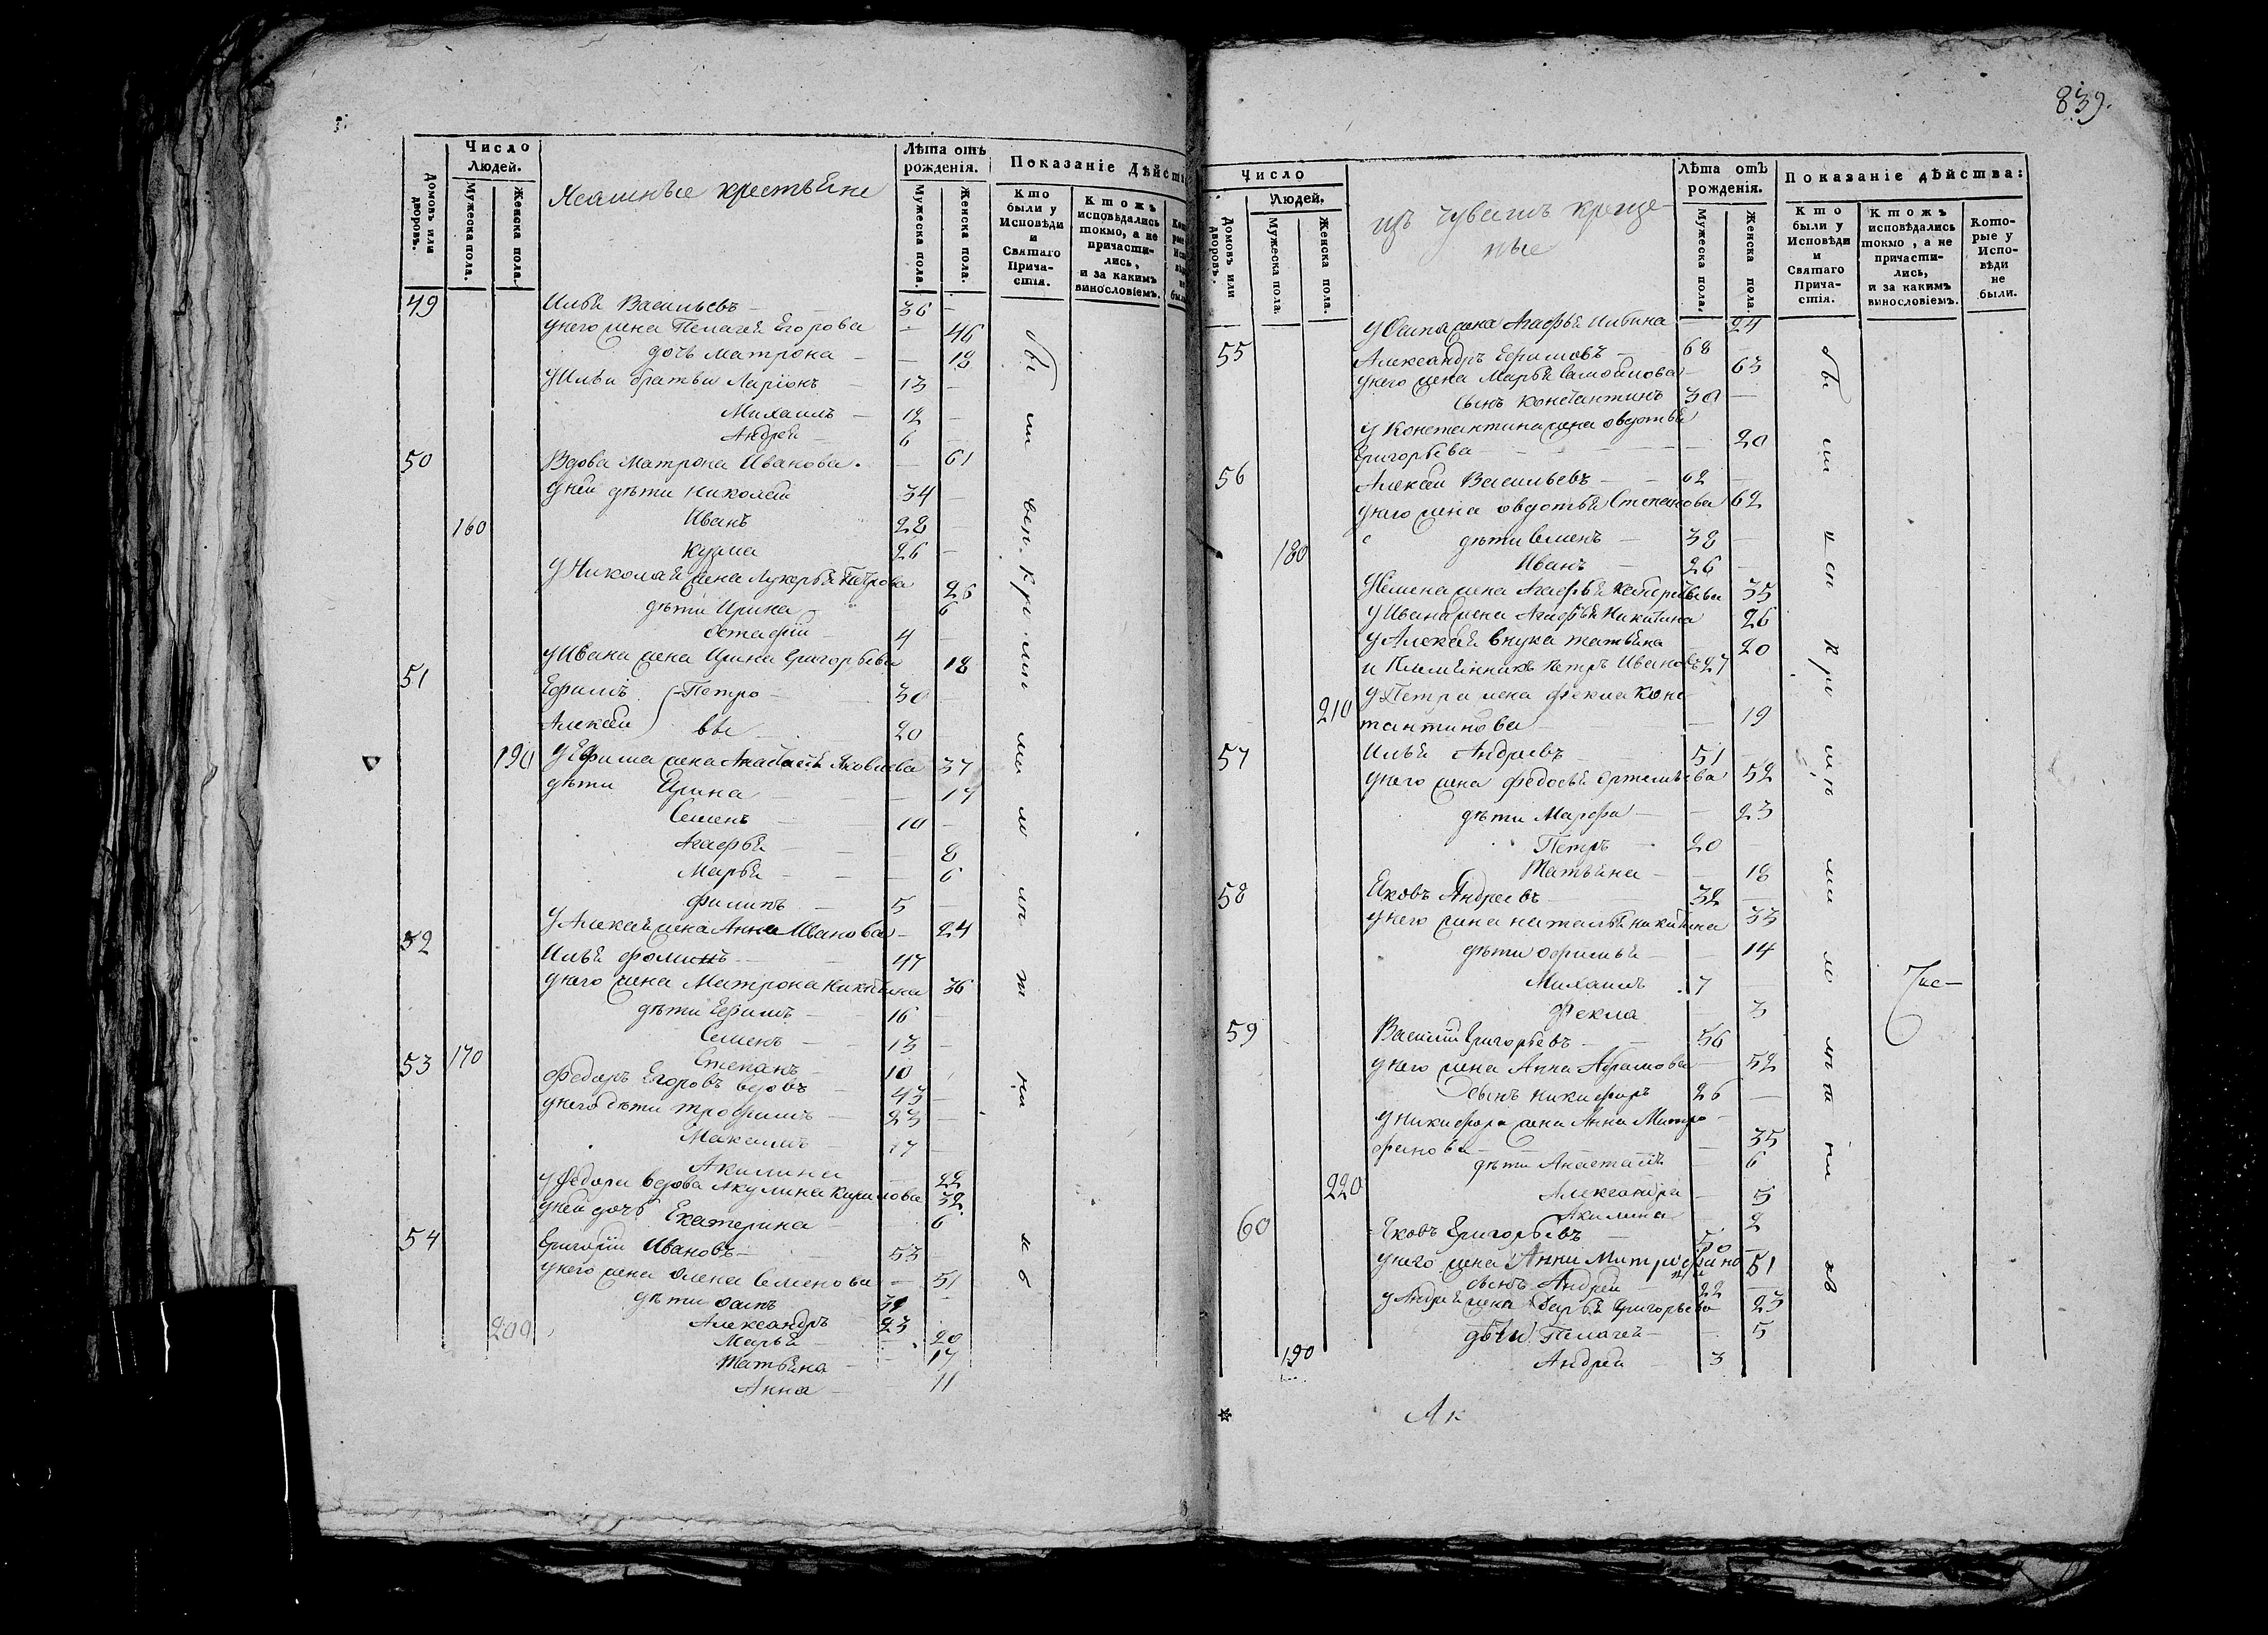 839.
Число
Людей.
Домовъ или дворовъ.
Мужеска пола.
Женска пола.
Ясашные крестьяне
Лѣта отъ рожденія.
Мужеска пола.
Женска пола.
Показаніе Дѣйст
Кто были у Исповѣди и Святаго Причастія.
Ктожъ исповѣдались токмо, а не причастились, и за какимъ винословіемъ.
49 Илья Васильевъ 36
у него жена Пелагея Егорова 46
дочь Матрона 18
у Ильи братья Ларіонъ 13
Михаилъ 12
Андрей 6
50 Вдова Матрона Иванова. 61
у ней дѣти Николай 34
160 Иванъ 28
Кузма 26
у Николая жена Лукерья Петрова 26
дѣти Ирина 6
Остафій 4
у Ивана жена Ирина Григорьева 18
51 Ефимъ Петро 30
Алексѣй вы 20
190 у Ефима жена Анастасія Яковлева 37
дѣти Ирина 14
Семенъ 10
Агафья 8
Марья 6
Филипъ 5
у Алексея жена Анна Иванова 24
52 Илья Фоминъ 47
у него жена Матрона Никитина 36
дѣти Ефимъ 16
Семенъ 13
170 Степанъ 10
53 Федоръ Егоровъ вдовъ 43
у него дѣти Трофимъ 23
Максимъ 17
Акилина 22
у Федора вдова Акулина Кирилова 32
у ней дочь Екатерина 6
54 Григорій Ивановъ 53
у него жена Олена Семенова 51
дѣти Осипъ
Александръ 23
200 Марья 20
Татьяна 17
Анна 11
Число
Людей.
Домовъ или дворовъ.
Мужеска пола.
Женска пола.
изъ чувашъ креще-
ные
Лѣта отъ рожденія.
Мужеска пола.
Женска пола.
Показаніе дѣйства:
Кто были у Исповѣди и Святаго Причастія.
Ктожъ исповѣдались токмо, а не причастились, и за какимъ винословіемъ.
Которые у Исповѣди не были.
у Осипа жена Агафья Ильина 24
55 Александръ Ефимовъ 68
у него жена Марья Самойлова 63
сынъ Константинъ 30
у Константина жена Овдотья
Григорьева 20
56 Алексѣй Васильевъ 62
у него жена Овдотья Степанова 62
180 дѣти Семенъ 38
Иванъ 26
у Семена жена Агафья 35
у Ивана жена Агафья Никитина 26
у Алексея внука Татьяна 20
и племянникъ Петръ Ивановъ 27
210 у Петра жена Фекла Конс
тантинова 19
57 Илья Андреевъ 51
у него жена Федосья Ортемьева 52
дѣти Марфа 23
Петръ 20
Татьяна 18
58 Яковъ Андреевъ 32
у него жена Наталья Никитина 33
дѣти Офимья 14
Михаилъ 7
Фекла 3
59 Василій Григорьевъ 56
у него жена Анна Абрамова 52
сынъ Никифоръ 26
у Никифора жена Анна Митро
фанова 35
дѣти Анастасія 6
220 Александра 5
Акилина 2
60 Яковъ Григорьевъ 50
у него жена Анна Митрофано 51
сынъ Андрей 22
у Андрея жена Дарья Григорьева 23
дѣти Пелагея 5
190 Андрей 3
Ак